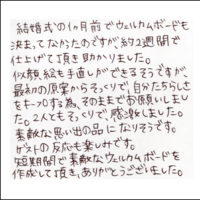 結婚式の1ヶ月前でウェルカムボードも
決まってなかったのですが、約2週間で
仕上げて頂き助かりました。
似顔絵も手直しができるそうですが、
最初の原案からそっくりで、自分たちらしさ
をキープする為、そのままでお願いしまし
た。2人ともそっくりで、感激しました。
素敵な思い出の品になりそうです。
ゲストの反応も楽しみです。
短期間で素敵なウェルカムボードを
作成して頂き、ありがとうございました。